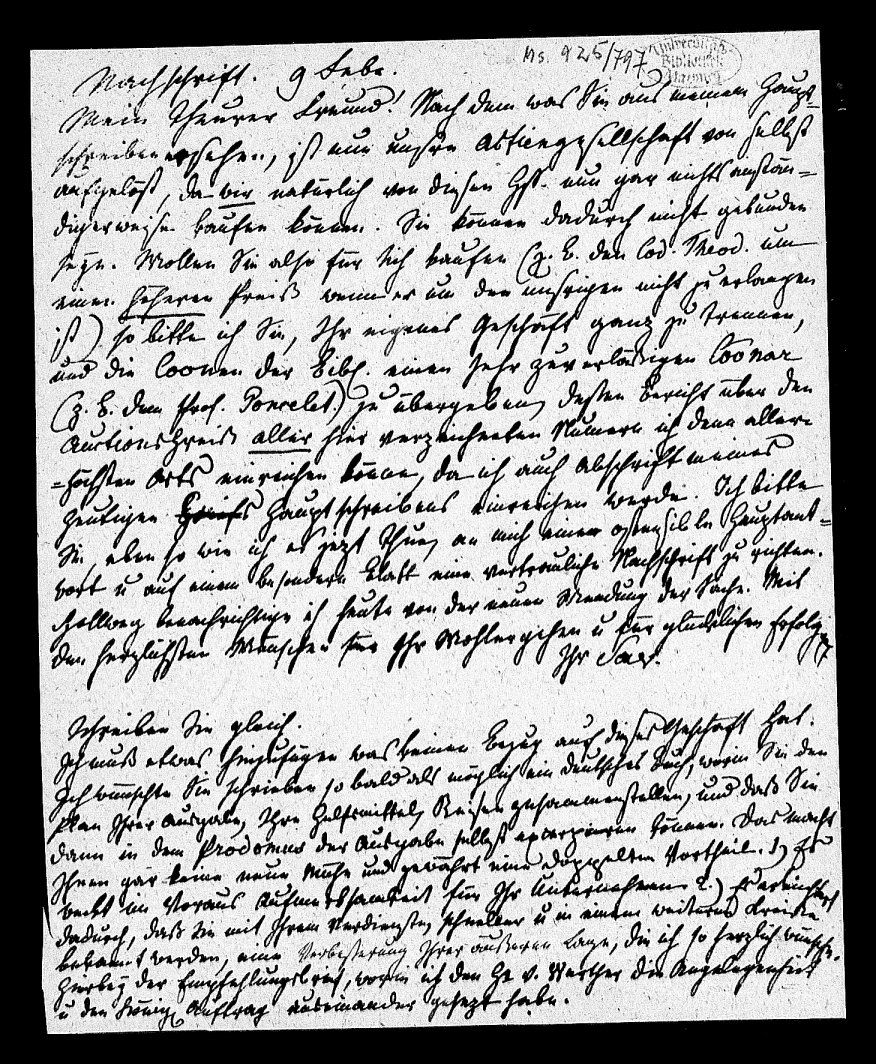 Ms. 925/797
Universitäts-
Bibliothek
Marburg
Nachschrift. 9 Febr.
Mein theurer Freund! Nach dem was Sie aus meinem Haupt-
schreiben ersehen, ist nun unsre Actiengesellschaft von selbst
aufgelöst, da wir natürlich von diesen Hss. nun gar nichts anstän-
digerweise kaufen können. Sie können dadurch nicht gebunden
seyn. Wollen Sie also für sich kaufen (z. B. den Cod. Theod. um
einen höheren Preiß wenn er um den unsrigen nicht zu erlangen
ist) so bitte ich Sie, Ihr eigenes Geschäft ganz zu trennen,
und die Comm. der Bibl. einem sehr zuverlässigen
(z. B. dem Prof. Poncelet) zu übergeben, dessen Bericht über den
Auctionspreiß aller hier verzeichneten Numern ich dann aller-
höchsten Orts einreichen könne, da ich auch Abschrift meines
heutigen Hauptschreibens einreichen werde. Ich bitte
Sie, eben so wie ich es jetzt thue, an mich einen ostensiblen Hauptant-
wort u auf einem besondern Blatt eine vertrauliche Nachschrift zu richten.
Hollweg benachrichtige ich heute von der neuen Wendung der Sache. Mit
den herzlichsten Wünschen für Ihr Wohlergehen u für glücklichen Erfolg
Ihr Sav.
Schreiben Sie gleich.
Ich muß etwas hinzufügen was keinen Bezug auf dieses Geschäft hat.
Ich wünschte Sie schrieben so bald als möglich ein deutsches Buch, worin Sie den
Plan Ihrer Ausgabe, Ihre Hülfsmittel, Reisen zusammenstellen, und daß Sie
dann in dem Prodomus der Ausgabe selbst excerpieren können. Das macht
Ihnen gar keine neue Mühe und gewährt einen doppelten Vortheil. 1) Es
weckt im Voraus Aufmerksamkeit für Ihr Unternehmen 2.)
dadurch, daß Sie mit Ihrem Verdienste, schneller u in einem weiteren Kreise
bekannt werden, eine Verbesserung Ihrer äußeren Lage, die ich so herzlich wünsche.
Hierbey der Empfehlungsbrief, worin ich dem H. v. Werther die Angelegenheit
u den Königl. Auftrag auseinander gesezt habe.